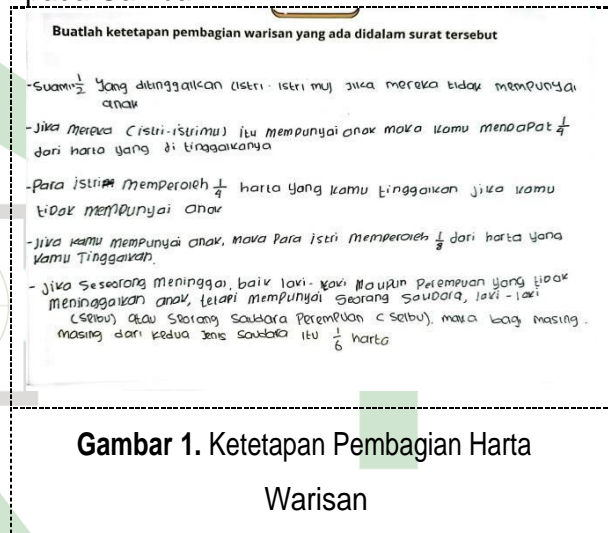 Buatlah ketetapan pembagian warisan yang ada didalam surat tersebut
- Suami 1/2 yang ditinggalkan (istri-istri mu) jika mereka tidak mempunyai
anak
- Jika mereka (istri-istrimu) itu mempunyai anak maka kamu mendapat 1/4
dari harta yang di tinggalkanya
- Para istri memperoleh 1/4 harta yang kamu tinggalkan jika kamu
tidak mempunyai anak
- Jika kamu mempunyai anak, maka Para istri memperoleh 1/8 dari harta yang
kamu Tinggalkan.
- Jika Seseorang meninggal, baik laki-laki Maupun Perempuan yang tidak
meninggalkan anak, tetapi mempunyai Seorang Saudara, laki-laki
(seibu) atau Seorang Saudara Perempuan (seibu). maka bag masing-
masing dari kedua Jenis Saudara itu 1/6 harta
Gambar 1. Ketetapan Pembagian Harta
Warisan